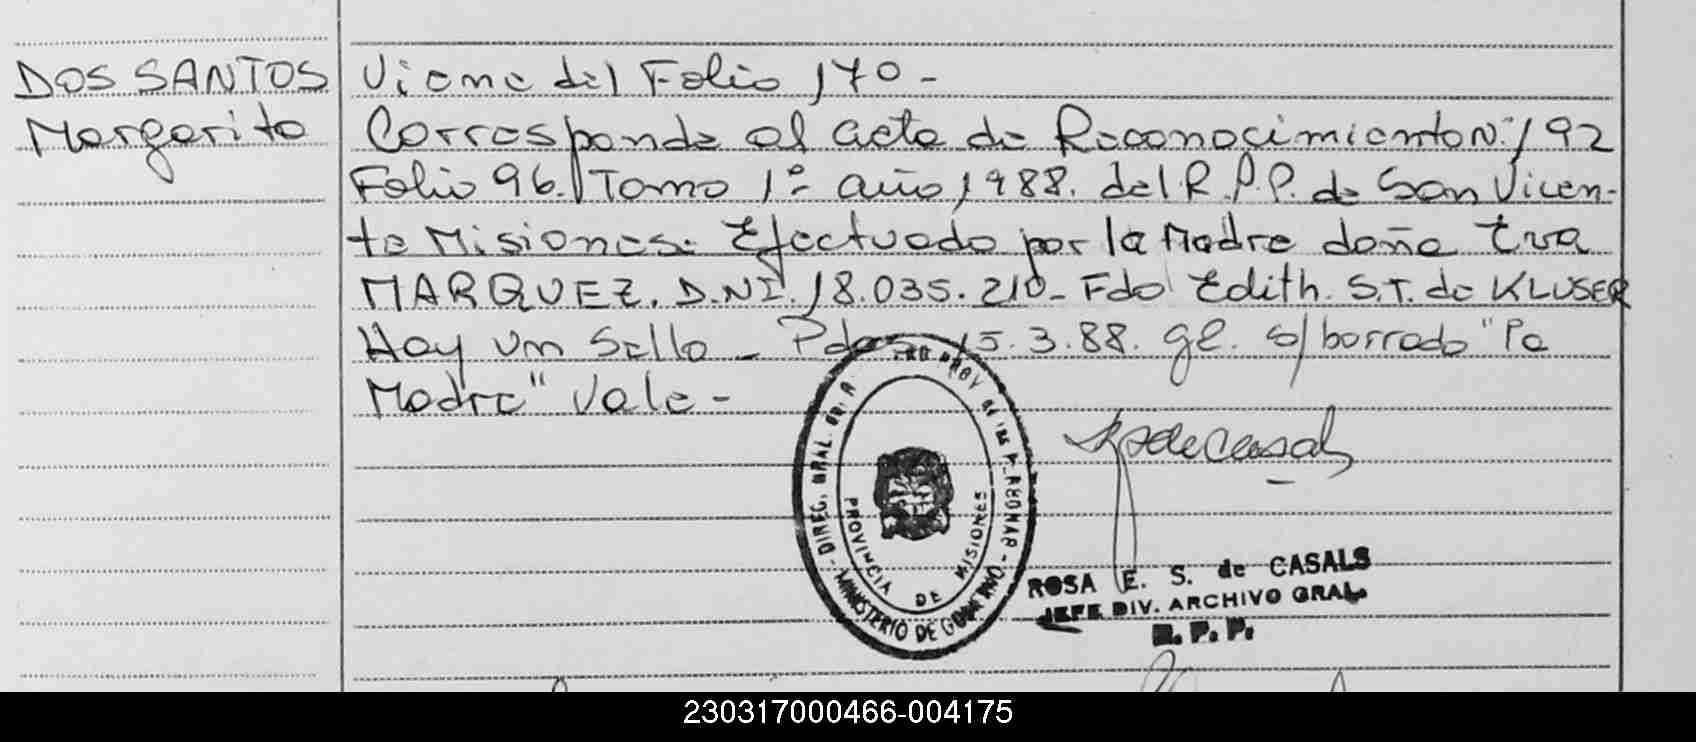 DOS SANTOS
Margarita
Viene del Folio 170 -
Corresponde al acta de Reconocimiento N: 192
Folio 96. Tomo 1º año 1988. del R.P.P. de San Vicen-
te Misiones. Efectuado por la Madre doña Eva
MARQUEZ. D.N.I. 18.035.210 - Fdo Edith. S.T. de KLUSER
Hay un Sello - Pdas 15.3.88. s/borrado "la
Madre" Vale -
DIREC. GRAL.
MINISTERIO DE GOBIERNO
PROVINCIA DE MISIONES
ROSA E. S. de CASALS
JEFE DIV. ARCHIVO GRAL.
R. P. P.
230317000466-004175